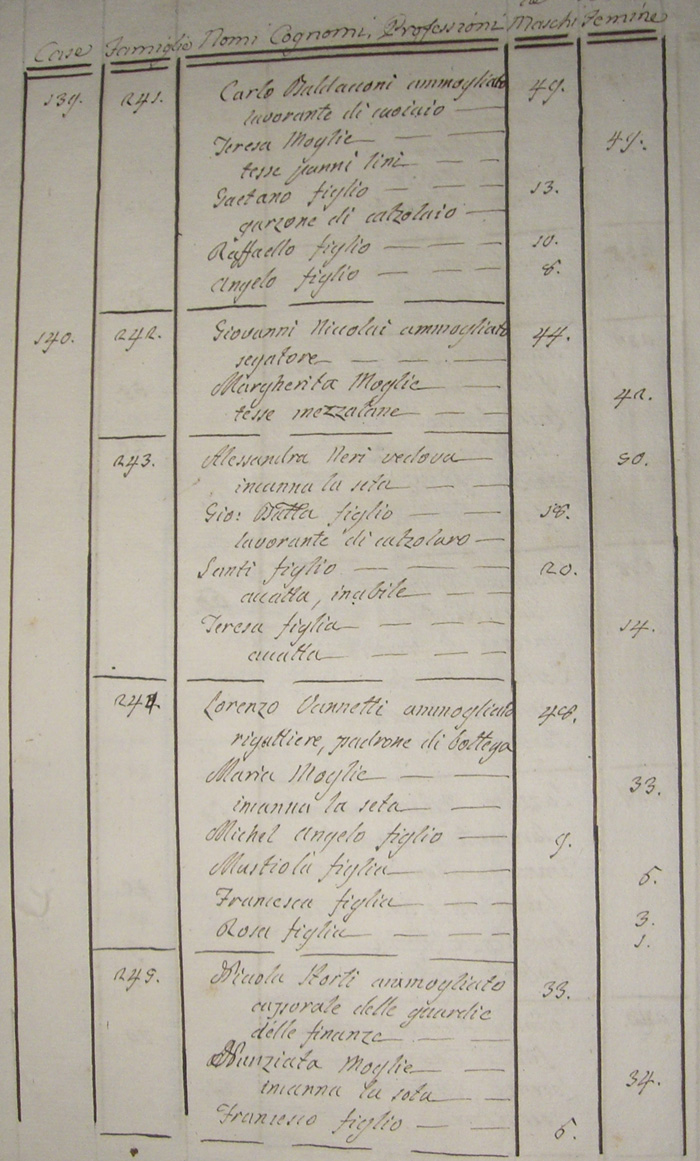 Case Famiglie Nomi Cognomi, Professioni Maschi Femine
139. 241. Carlo Baldacconi ammogliato 49.
lavorante di cuoiaio
Teresa Moglie 49.
tesse panni lini
Gaetano figlio 13.
garzone di calzolaio
Raffaello figlio 10.
Angelo figlio 8.
140. 242. Giovanni Niccolai ammogliato 44.
segatore
Margherita Moglie 42.
tesse mezzalane
243. Alessandra Neri vedova 50.
incanna la seta
Gio: Batta figlio 18.
lavorante di calzolaro
Santi figlio 20.
accatta, inabile
Teresa figlia 14.
accatta
244. Lorenzo Vannetti ammogliato 48.
rigattiere, padrone di bottega
Maria Moglie 33.
incanna la seta
Michel Angelo figlio 9.
Mustiola figlia 6.
Francesca figlia 3.
Rosa figlia 1.
245. Nicola Storti ammogliato 33.
caporale delle guardie
delle finanze
Nunziata Moglie 34.
incanna la seta
Francesco figlio 6.